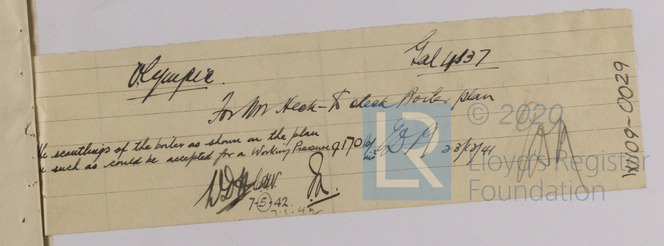 Olympic.
Gal 4837
For Mr Heck - to check Boiler plan
he scantlings of the boiler as shown on the plan
such as could be accepted for a Working Pressure of 170 lbs
23/12/41
7-5-42.
7.1.42
W109-0029
LR
© 2020
Lloyd's Register
Foundation